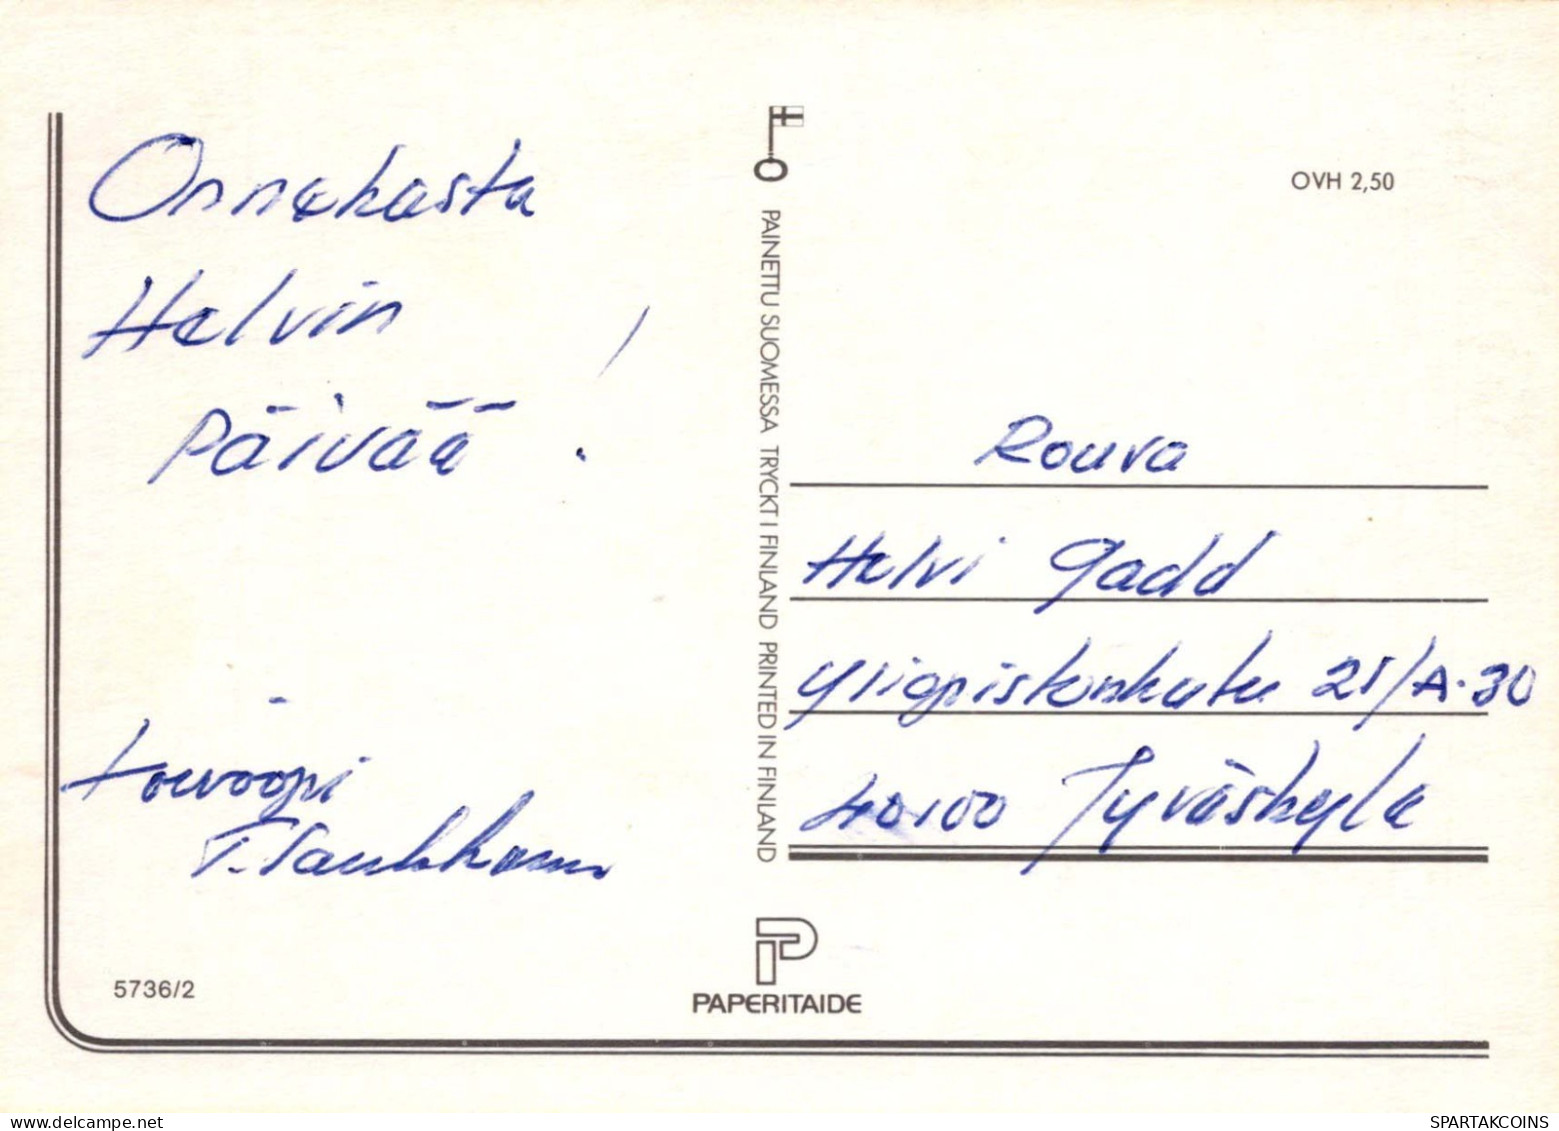 Onnekasta
Helvin
Päivää !
toivoopi
OVH 2,50
PAINETTU SUOMESSA TRYCKT I FINLAND PRINTED IN FINLAND
Rouva
Helvi Gadd
Yliopistonkatu 25/A.30
40100 Jyväskyla
5736/2
PAPERITAIDE
SPARTAKCOINS